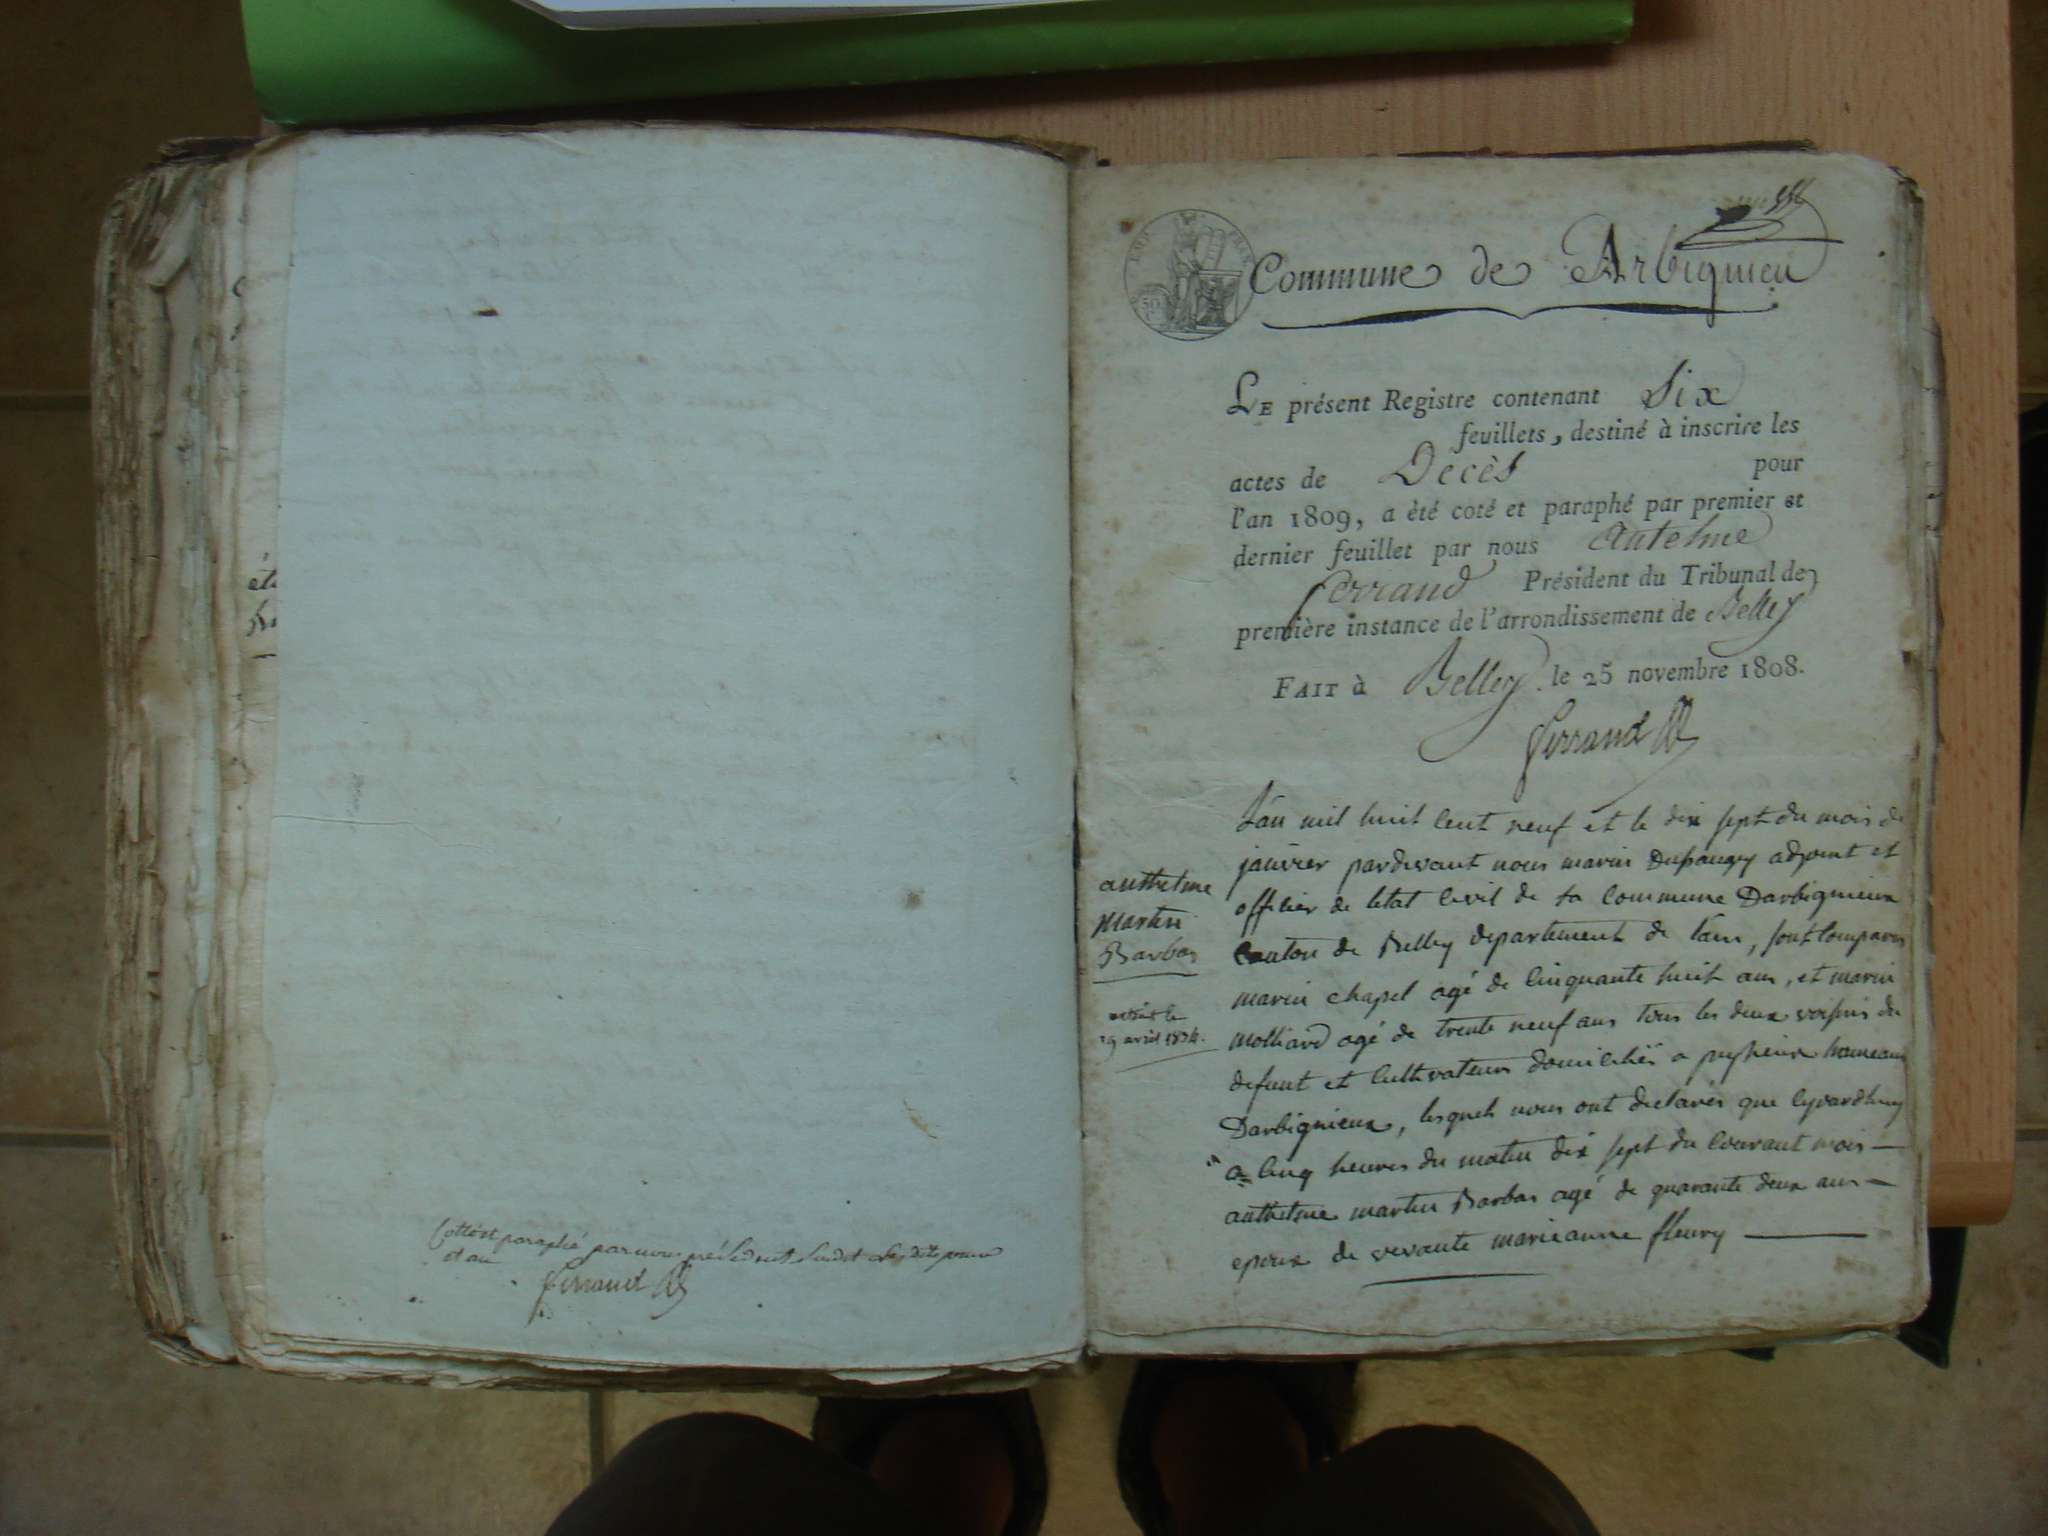 Cotté et paraphé par nous président susdit
et an
Ferrand
Commune de Arbignieu
50
LE présent Registre contenant Six
feuillets, destiné à inscrire les
actes de Décès pour
l'an 1809, a été coté et paraphé par premier et
dernier feuillet par nous Antelme
Ferrand Président du Tribunal de
première instance de l'arrondissement de Belley
FAIT à Belley le 25 novembre 1808.
Ferrand
L'an mil huit cent neuf et le dix sept du mois de
janvier pardevant nous marin Dupaugey adjoint et
officier de letat civil de la commune Darbignieux
Canton de Belley departement de lain, sont comparus
marin chapel agé de cinquante huit ans, et marin
molliard agé de trente neuf ans tous les deux voisins du
defunt et cultivateurs domiciliés a hameau
Darbignieux, lesquels nous ont declarés que
a cinq heures du matin dix sept du courant mois —
anthelme martin Barbas agé de quarante deux ans —
epoux de vivante marieanne fleury —
anthelme
Martin
Barbas
19 avril 1834.